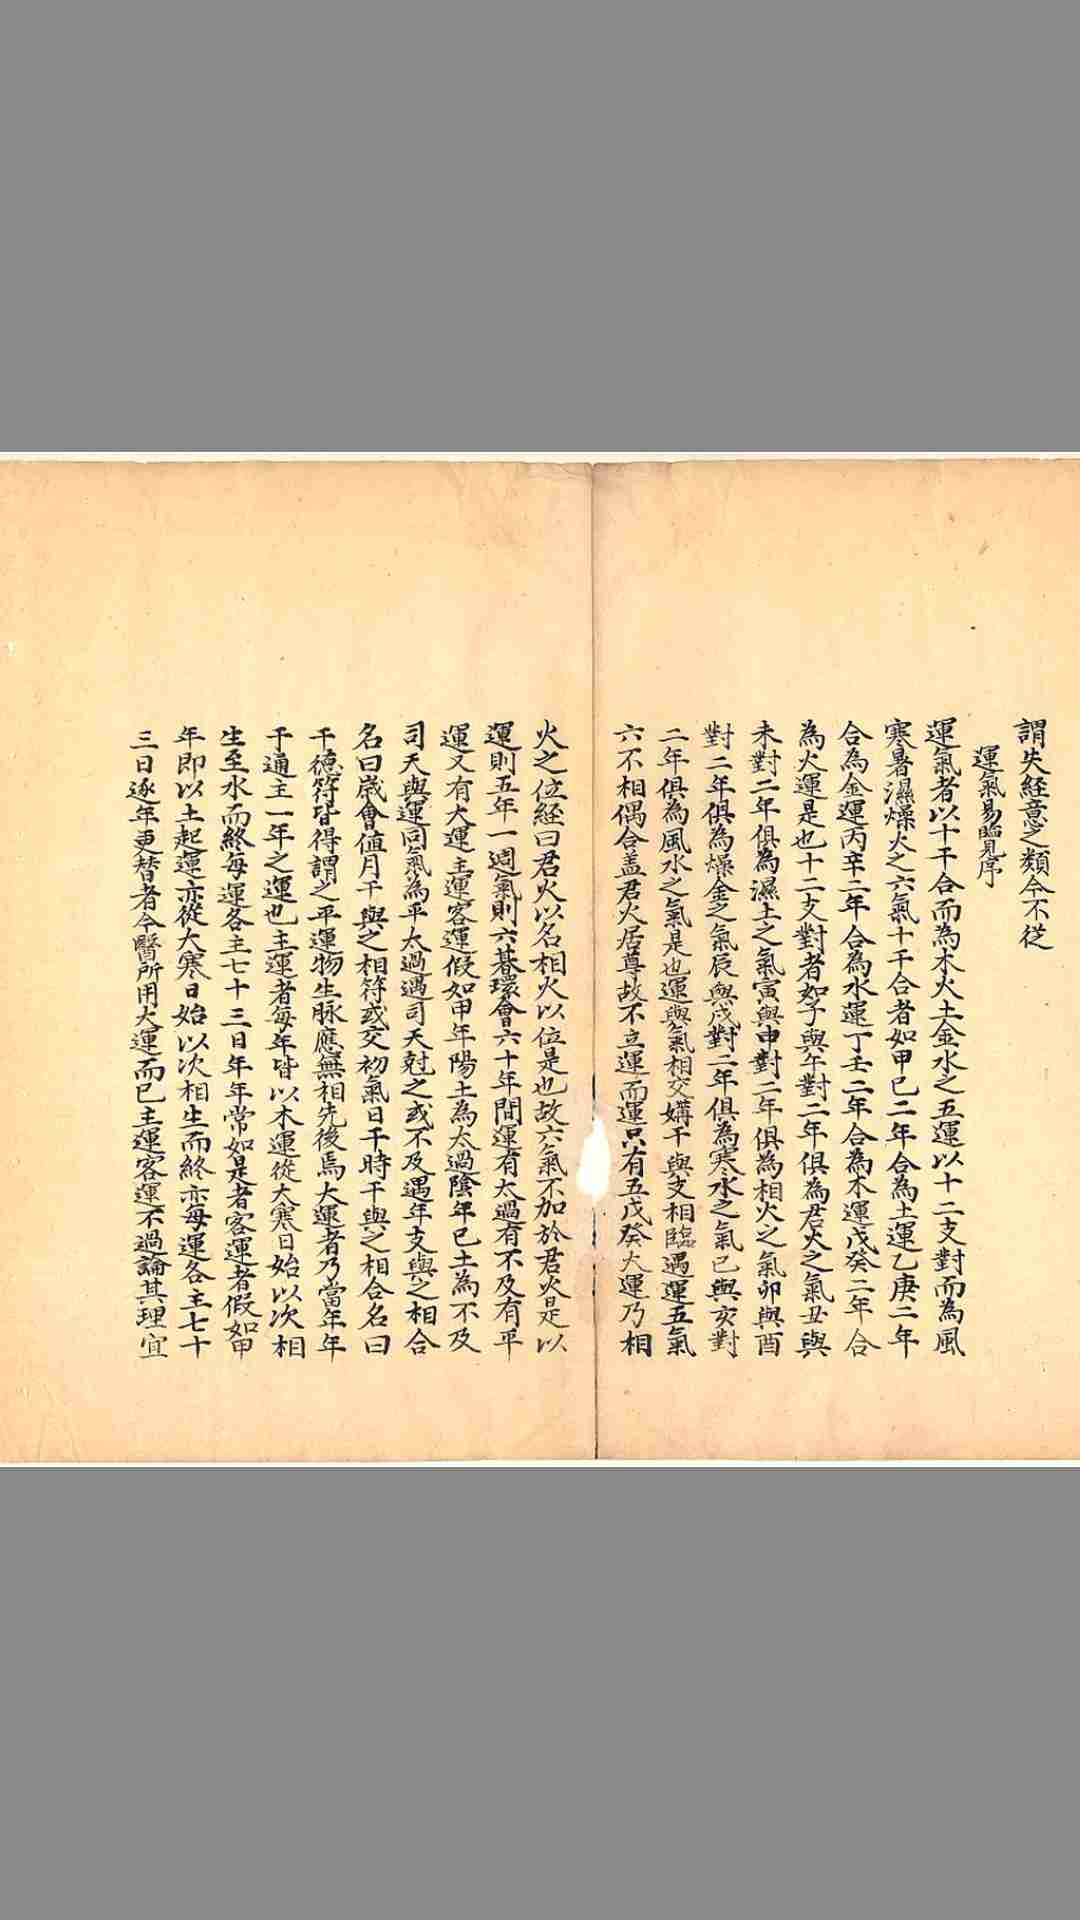 謂失経意之類今不従
運氣易覽序
運氣者以十干合而為木火土金水之五運以十二支對而為風
寒暑濕燥火之六氣十干合者如甲己二年合為土運乙庚二年
合為金運丙辛二年合為水運丁壬二年合為木運戊癸二年合
為火運是也十二支對者如子與午對二年俱為君火之氣丑與
未對二年俱為濕土之氣寅與申對二年俱為相火之氣卯與酉
對二年俱為燥金之氣辰與戌對二年俱為寒水之氣巳與亥對
二年俱為風水之氣是也運與氣相交媾干與支相臨遇運五氣
六不相偶合盖君火居尊故不立運而運只有五戊癸大運乃相
火之位経曰君火以名相火以位是也故六氣不加於君火是以
運則五年一週氣則六朞環會六十年間運有太過有不及有平
運又有大運主運客運假如甲年陽土為太過陰年己土為不及
司天與運同氣為平太過遇司天尅之或不及遇年支與之相合
名曰嵗會值月干與之相符或交初氣日干時干與之相合名曰
干德符皆得謂之平運物生脉應無相先後焉大運者乃當年年
干通主一年之運也主運者每年皆以木運從大寒日始以次相
生至水而終每運各主七十三日年年常如是者客運者假如甲
年即以土起運亦從大寒日始以次相生而終亦每運各主七十
三日逐年更替者今醫所用大運而已主運客運不過論其理宜